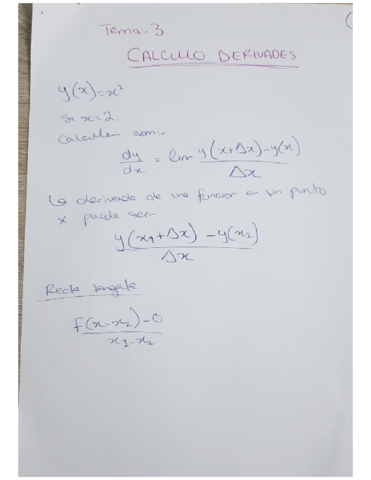 Tema-3
CALCULO DERIVADES
y(x)=x²
si x=2
Calculem com:-
dy/dx = lim y(x+Δx)-y(x)/Δx
La derivada de una funcion en un punto
x puede ser:-
y(x1+Δx)-y(x2)/Δx
Recta tangente
f(x-x2)-0/x1-x2